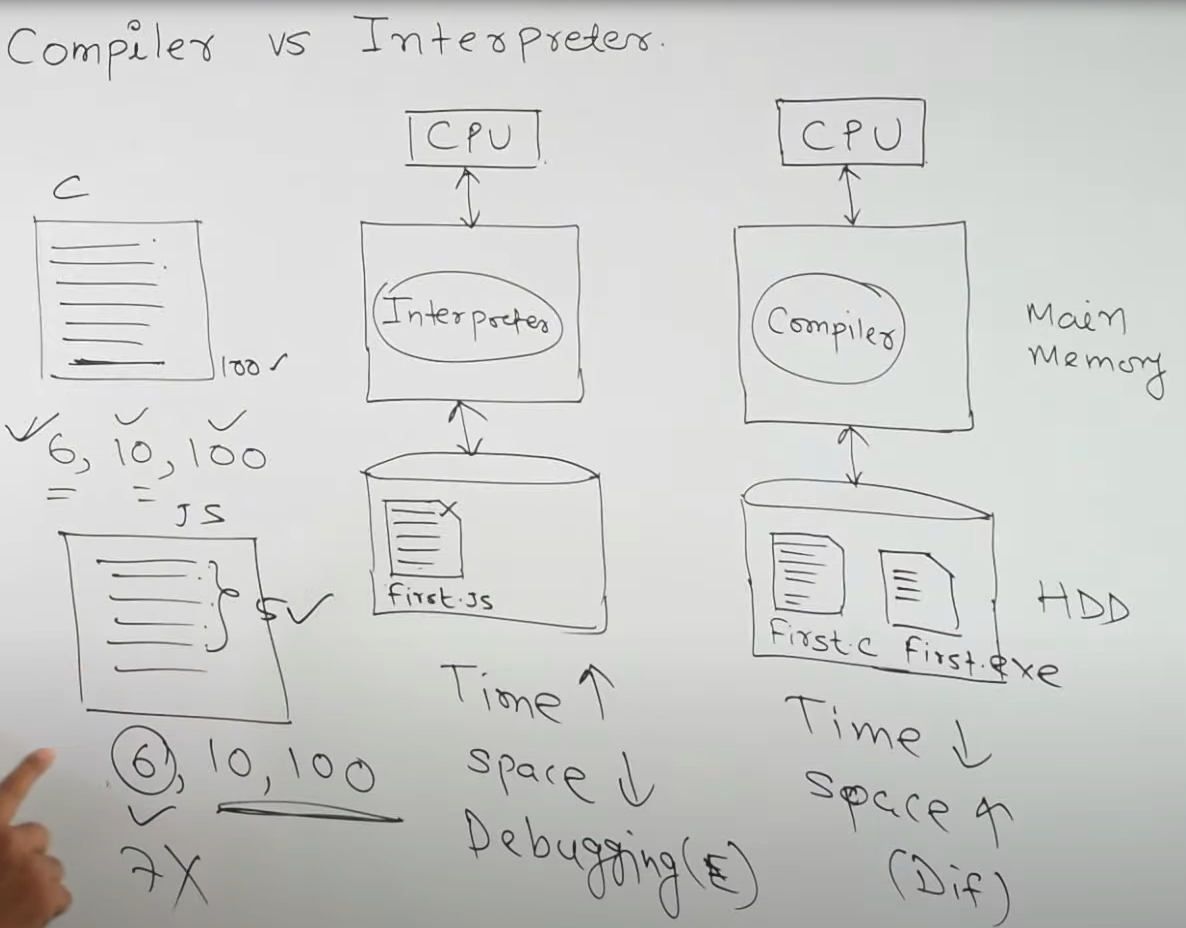 Compiler vs Interpreter.
C
100 ✓
6, 10, 100
JS
5 ✓
6, 10, 100
7X
CPU
Interpreter
First.JS
Time ↑
Space ↓
Debugging(E)
CPU
Compiler
Main
Memory
First.c First.exe
HDD
Time ↓
Space ↑
(Dif)